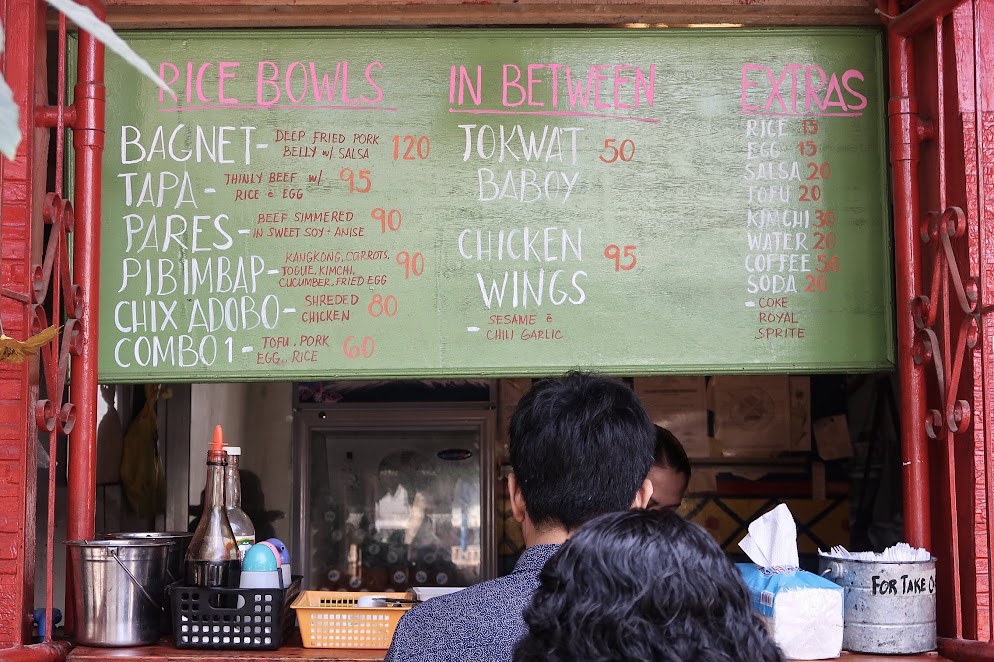 RICE BOWLS
BAGNET- DEEP FRIED PORK BELLY W/ SALSA 120
TAPA - THINLY BEEF W/ RICE & EGG 95
PARES- BEEF SIMMERED IN SWEET SOY + ANISE 90
PIBIMBAP- KANGKONG, CARROTS, TOGUE, KIMCHI, CUCUMBER, FRIED EGG 90
CHIX ADOBO- SHREDED CHICKEN 80
COMBO 1 - TOFU, PORK EGG, RICE 60
IN BETWEEN
JOKWAT 50
BABOY
CHICKEN 95
WINGS
- SESAME &
CHILI GARLIC
EXTRAS
RICE 15
EGG 15
SALSA 20
TOFU 20
KIMCHI 30
WATER 20
COFFEE 50
SODA 20
- COKE
ROYAL
SPRITE
FOR TAKE